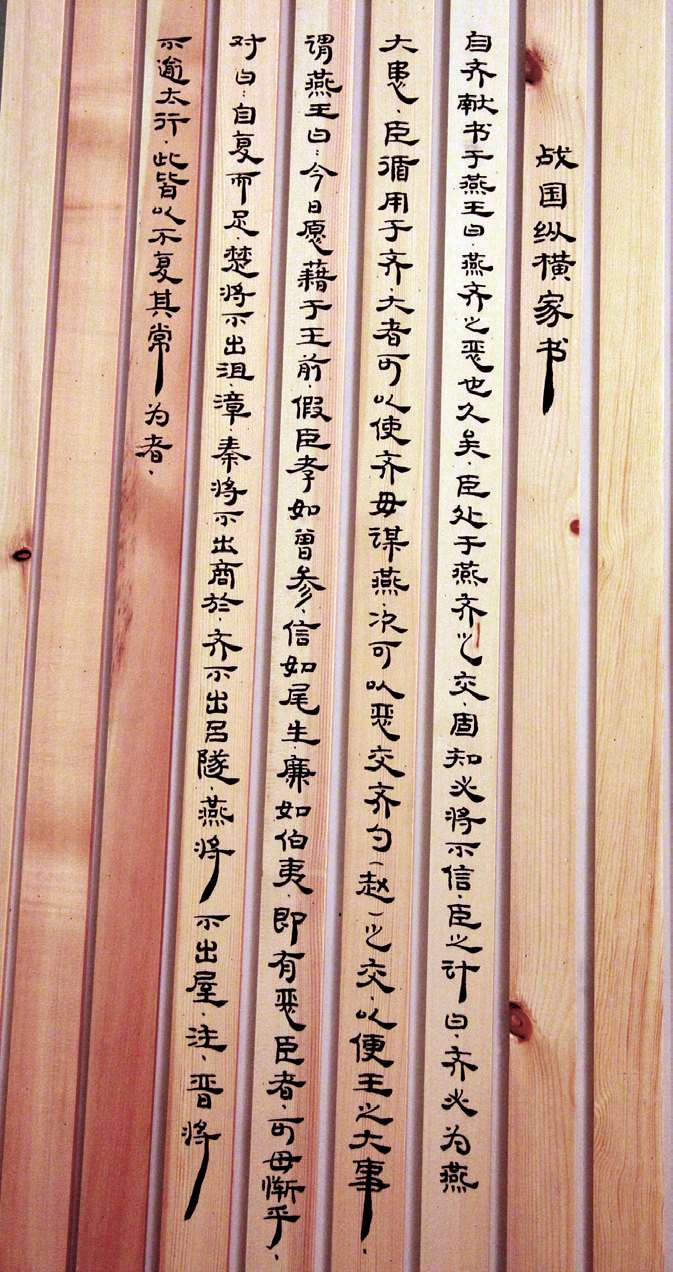 战国纵横家书
自齐献书于燕王曰.燕齐之恶也久矣.臣处于燕齐之交.固知必将不信.臣之计曰.齐必为燕
大患.臣循用于齐.大者可以使齐毋谋燕.次可以恶交齐勺(赵)之交.以便王之大事.
谓燕王曰:今日愿藉于王前.假臣孝如曾参.信如尾生.廉如伯夷.即有恶臣者.可毋惭乎.
对曰:自复而足.楚将不出沮.漳.秦将不出商於.齐不出吕隧.燕将不出屋.注.晋将
不逾太行.此皆以不复其常为者.